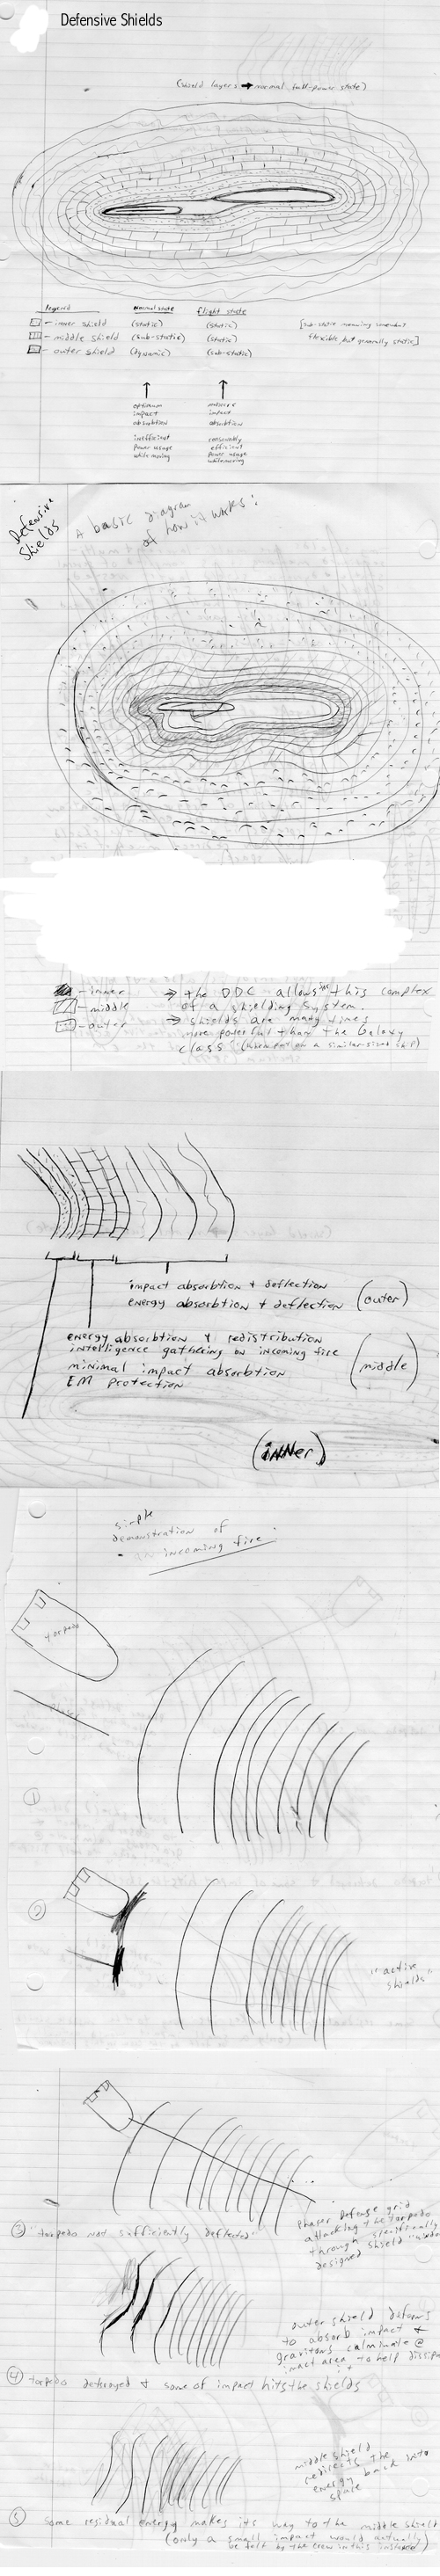 Defensive Shields
(shield layers → normal full-power state)
Legend
normal state
flight state
- inner shield
(static)
(static)
[sub-static meaning somewhat
- middle shield
(sub-static)
(static)
flexible, but generally static]
- outer shield
(dynamic)
(sub-static)
optimum
impact
absorbtion
inefficient
power usage
while moving
impact
absorbtion
reasonably
efficient
power usage
while moving
Defensive
Shields
A basic diagram
of how it works:
- inner
- middle
- outer
→ the DDC allows for this complex
of a shielding system.
→ shields are many times
more powerful than the Galaxy
class (when put on a similar-sized ship)
impact absorbtion + deflection
energy absorbtion + deflection
(outer)
energy absorbtion + redistribution
intelligence gathering on incoming fire
minimal impact absorbtion
EM protection
(middle)
(inner)
simple
demonstration of
incoming fire:
torpedo
phaser
1
2
"active
shields"
3 "torpedo not sufficiently deflected"
Phaser Defense grid
attacking the torpedo
through specifically
designed shield
outer shield deforms
to absorb impact &
gravitons culminate @
impact area to help dissipate
it
4 torpedo destroyed & some of impact hits the shields
middle shield
redirects the
energy back into
space
5 some residual energy makes its way to the middle shield
(only a small impact would actually
be felt by the crew in this instance)